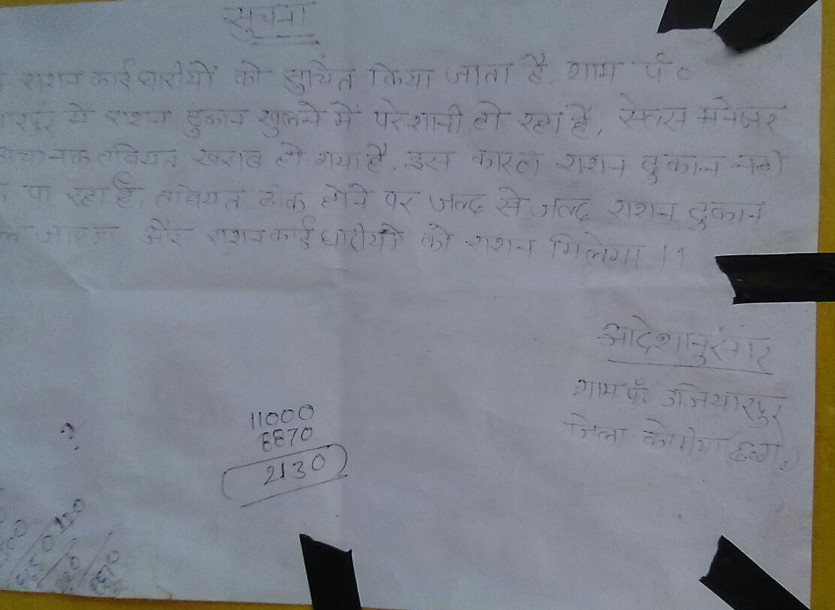 सुचना
राशन कार्ड धारीयों को सुचित किया जाता है. ग्राम पं०
में राशन दुकान खुलने में परेशानी हो रहा है, सेल्स मनेजर
तबियत खराब हो गया है. इस कारण राशन दुकान नही
पा रहा है. तबियत ठीक होने पर जल्द से जल्द राशन दुकान
जाएगा और राशन कार्ड धारीयों को राशन मिलेगा ।।
आदेशानुसार
ग्राम पं० उजियारपुर
जिला कोरीया (छ०ग०)
11000
8870
2130